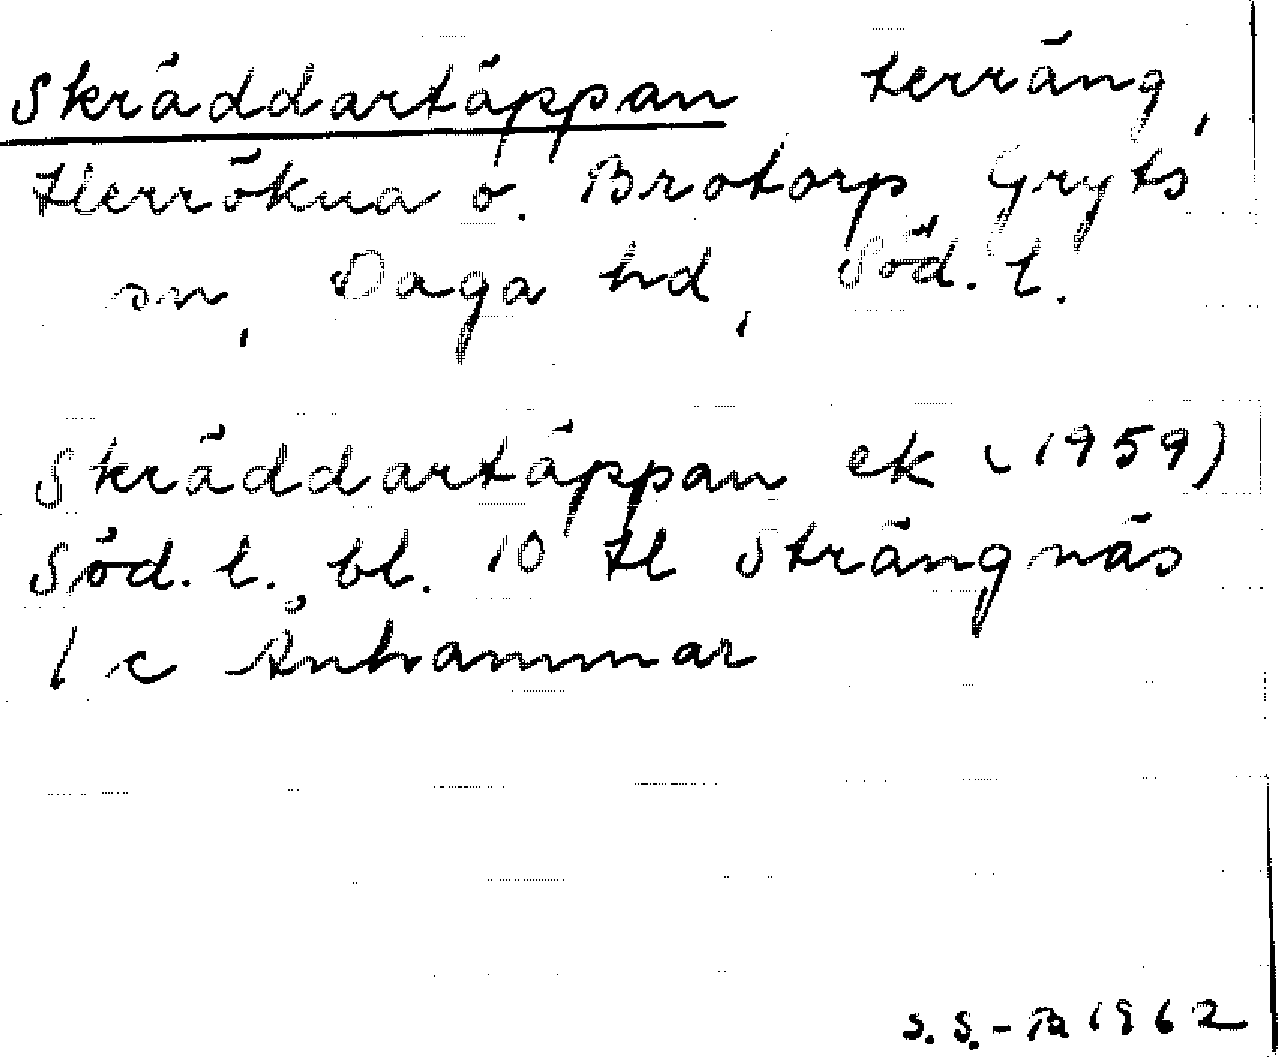 Skräddartäppan terräng,
Herrökna o. Brotorp, Gryts
sn, Daga hd, Söd. l.
Skräddartäppan ek (1959)
Söd. l. bl. 10 H Strängnäs
1 c Ånhammar
S. S. - 1962